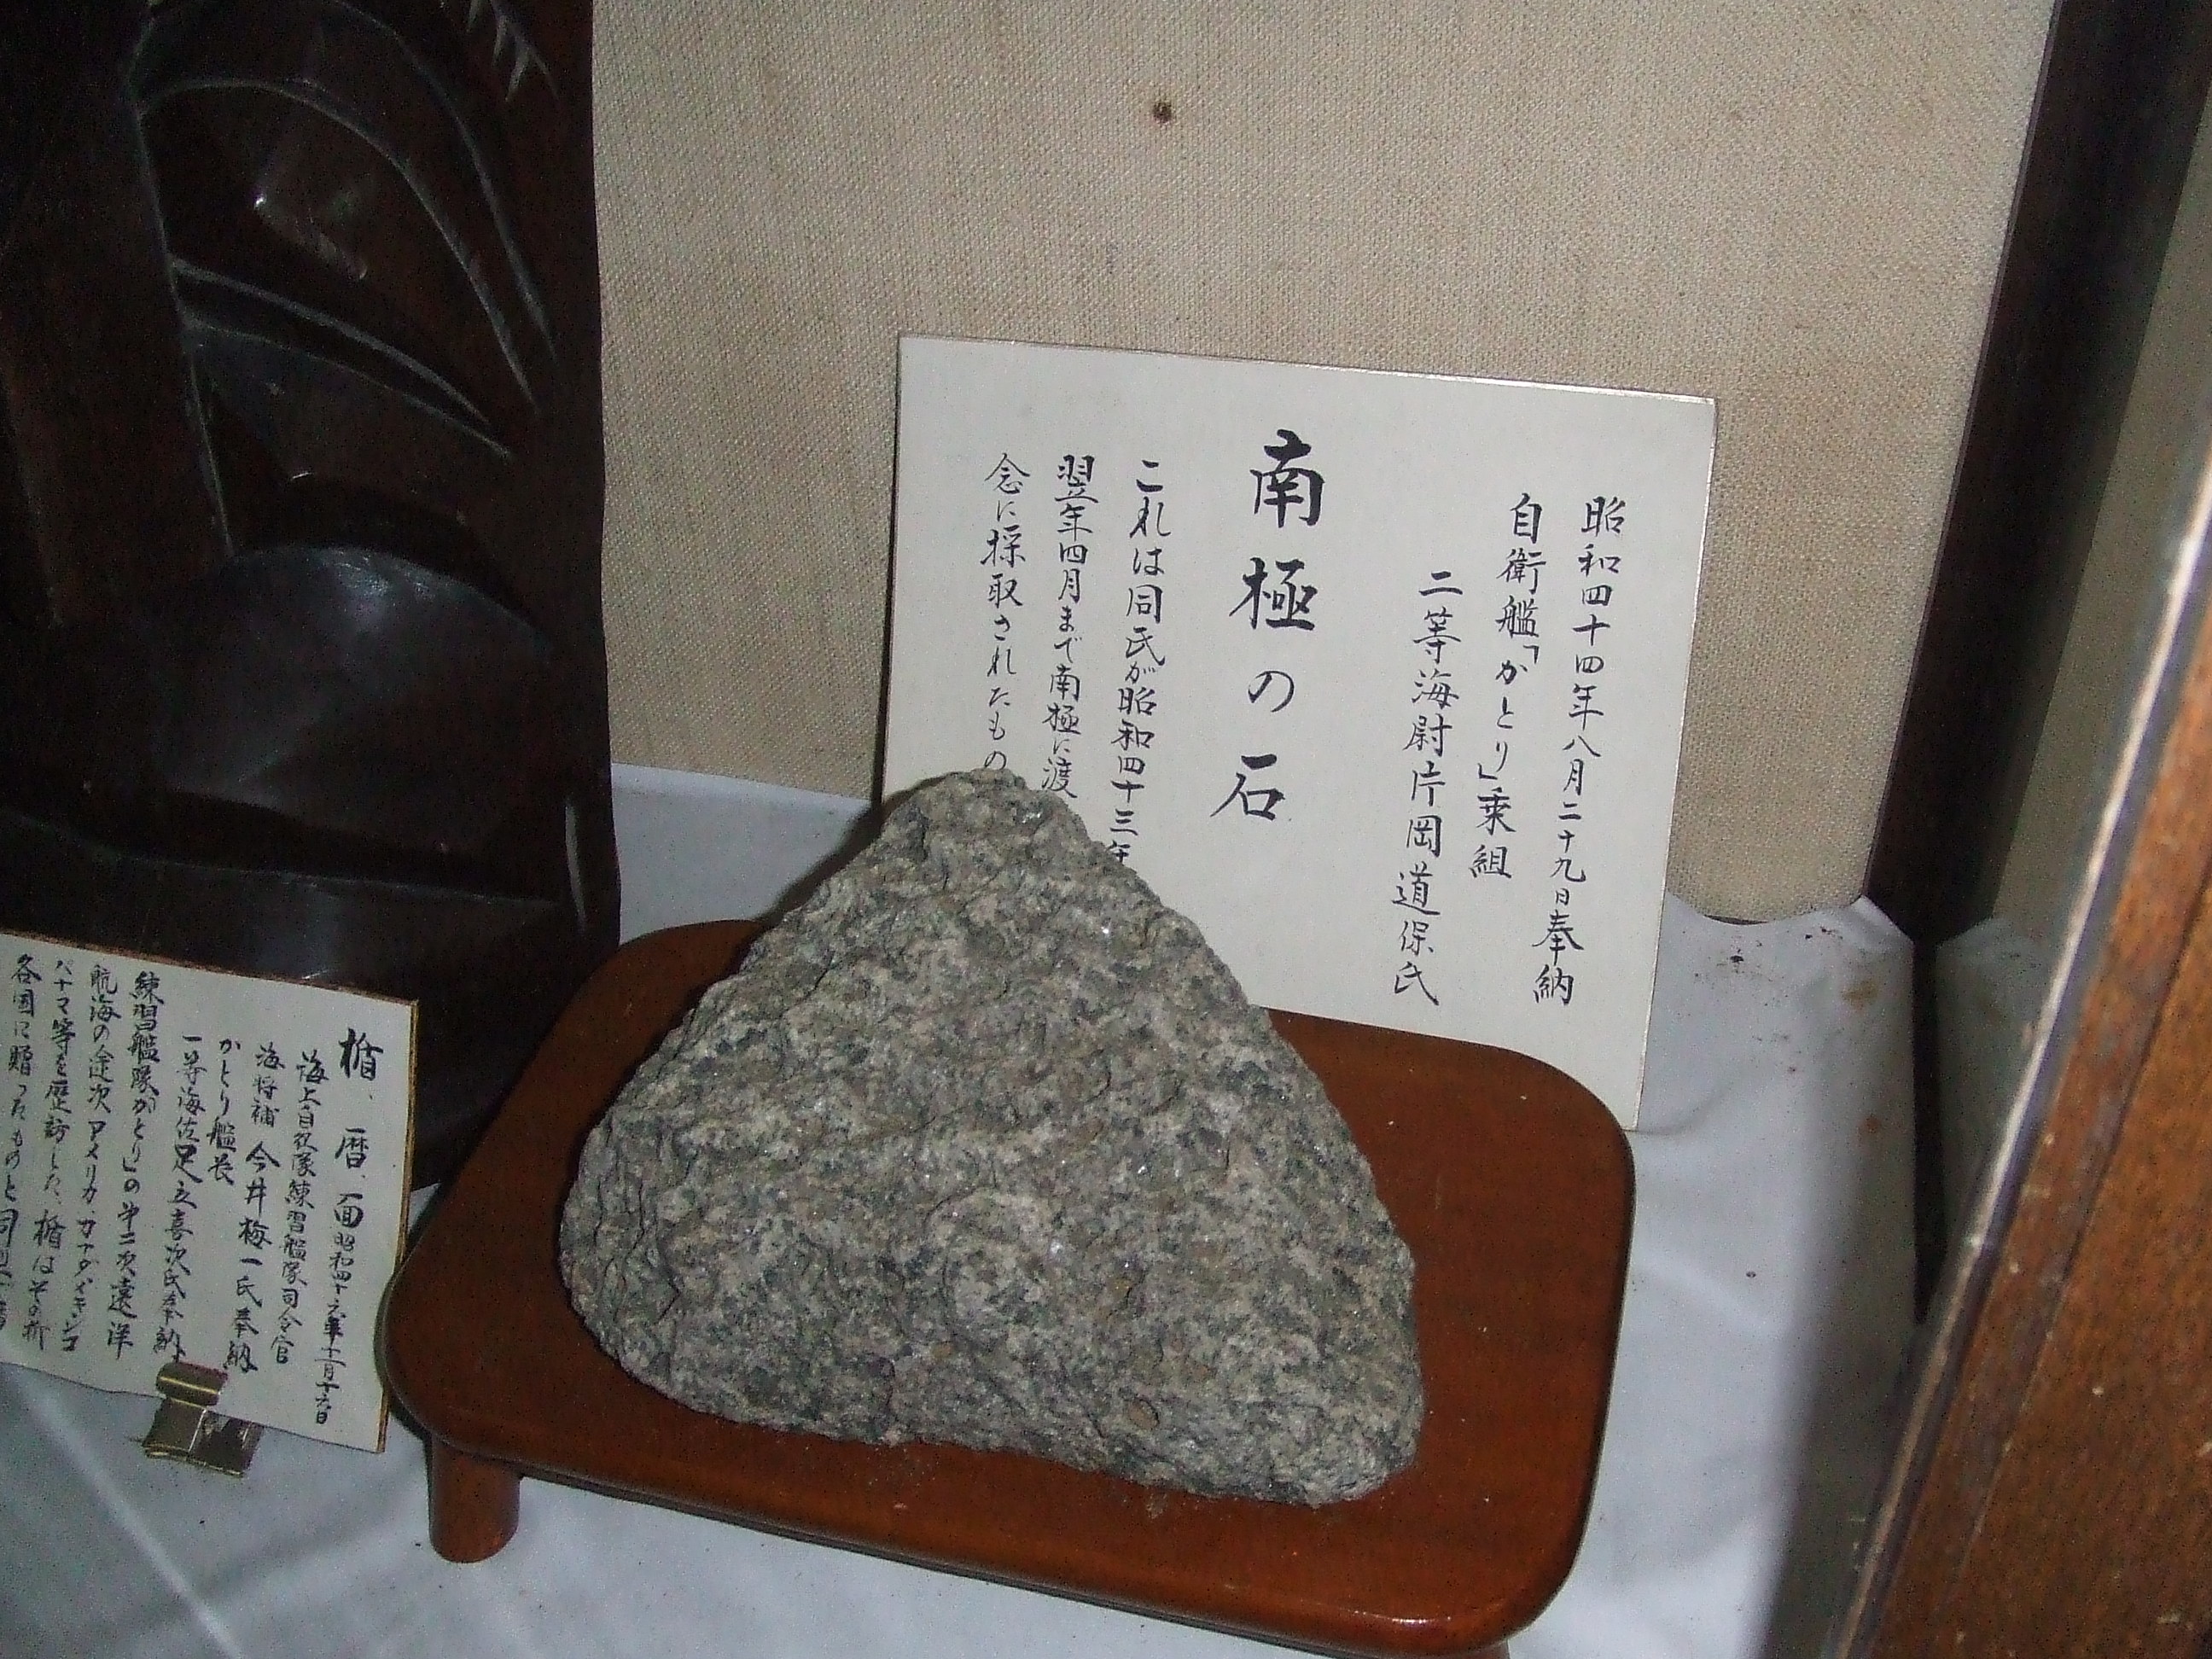 昭和四十四年八月二十九日奉納
自衛艦「かとり」乗組
二等海尉片岡道保氏
南極の石
これは同氏が昭和四十三年
翌年四月まで南極に渡
念に採取されたもの
楯、暦、面 昭和四十六年十一月十六日
海上自衛隊練習艦隊司令官
海将補 今井梅一氏奉納
かとり艦長
一等海佐足立喜次氏奉納
練習艦隊「かとり」の第二次遠洋
航海の途次アメリカ、カナダ、メキシコ
パナマ等を歴訪した、楯はその折
各国に贈ったものと同